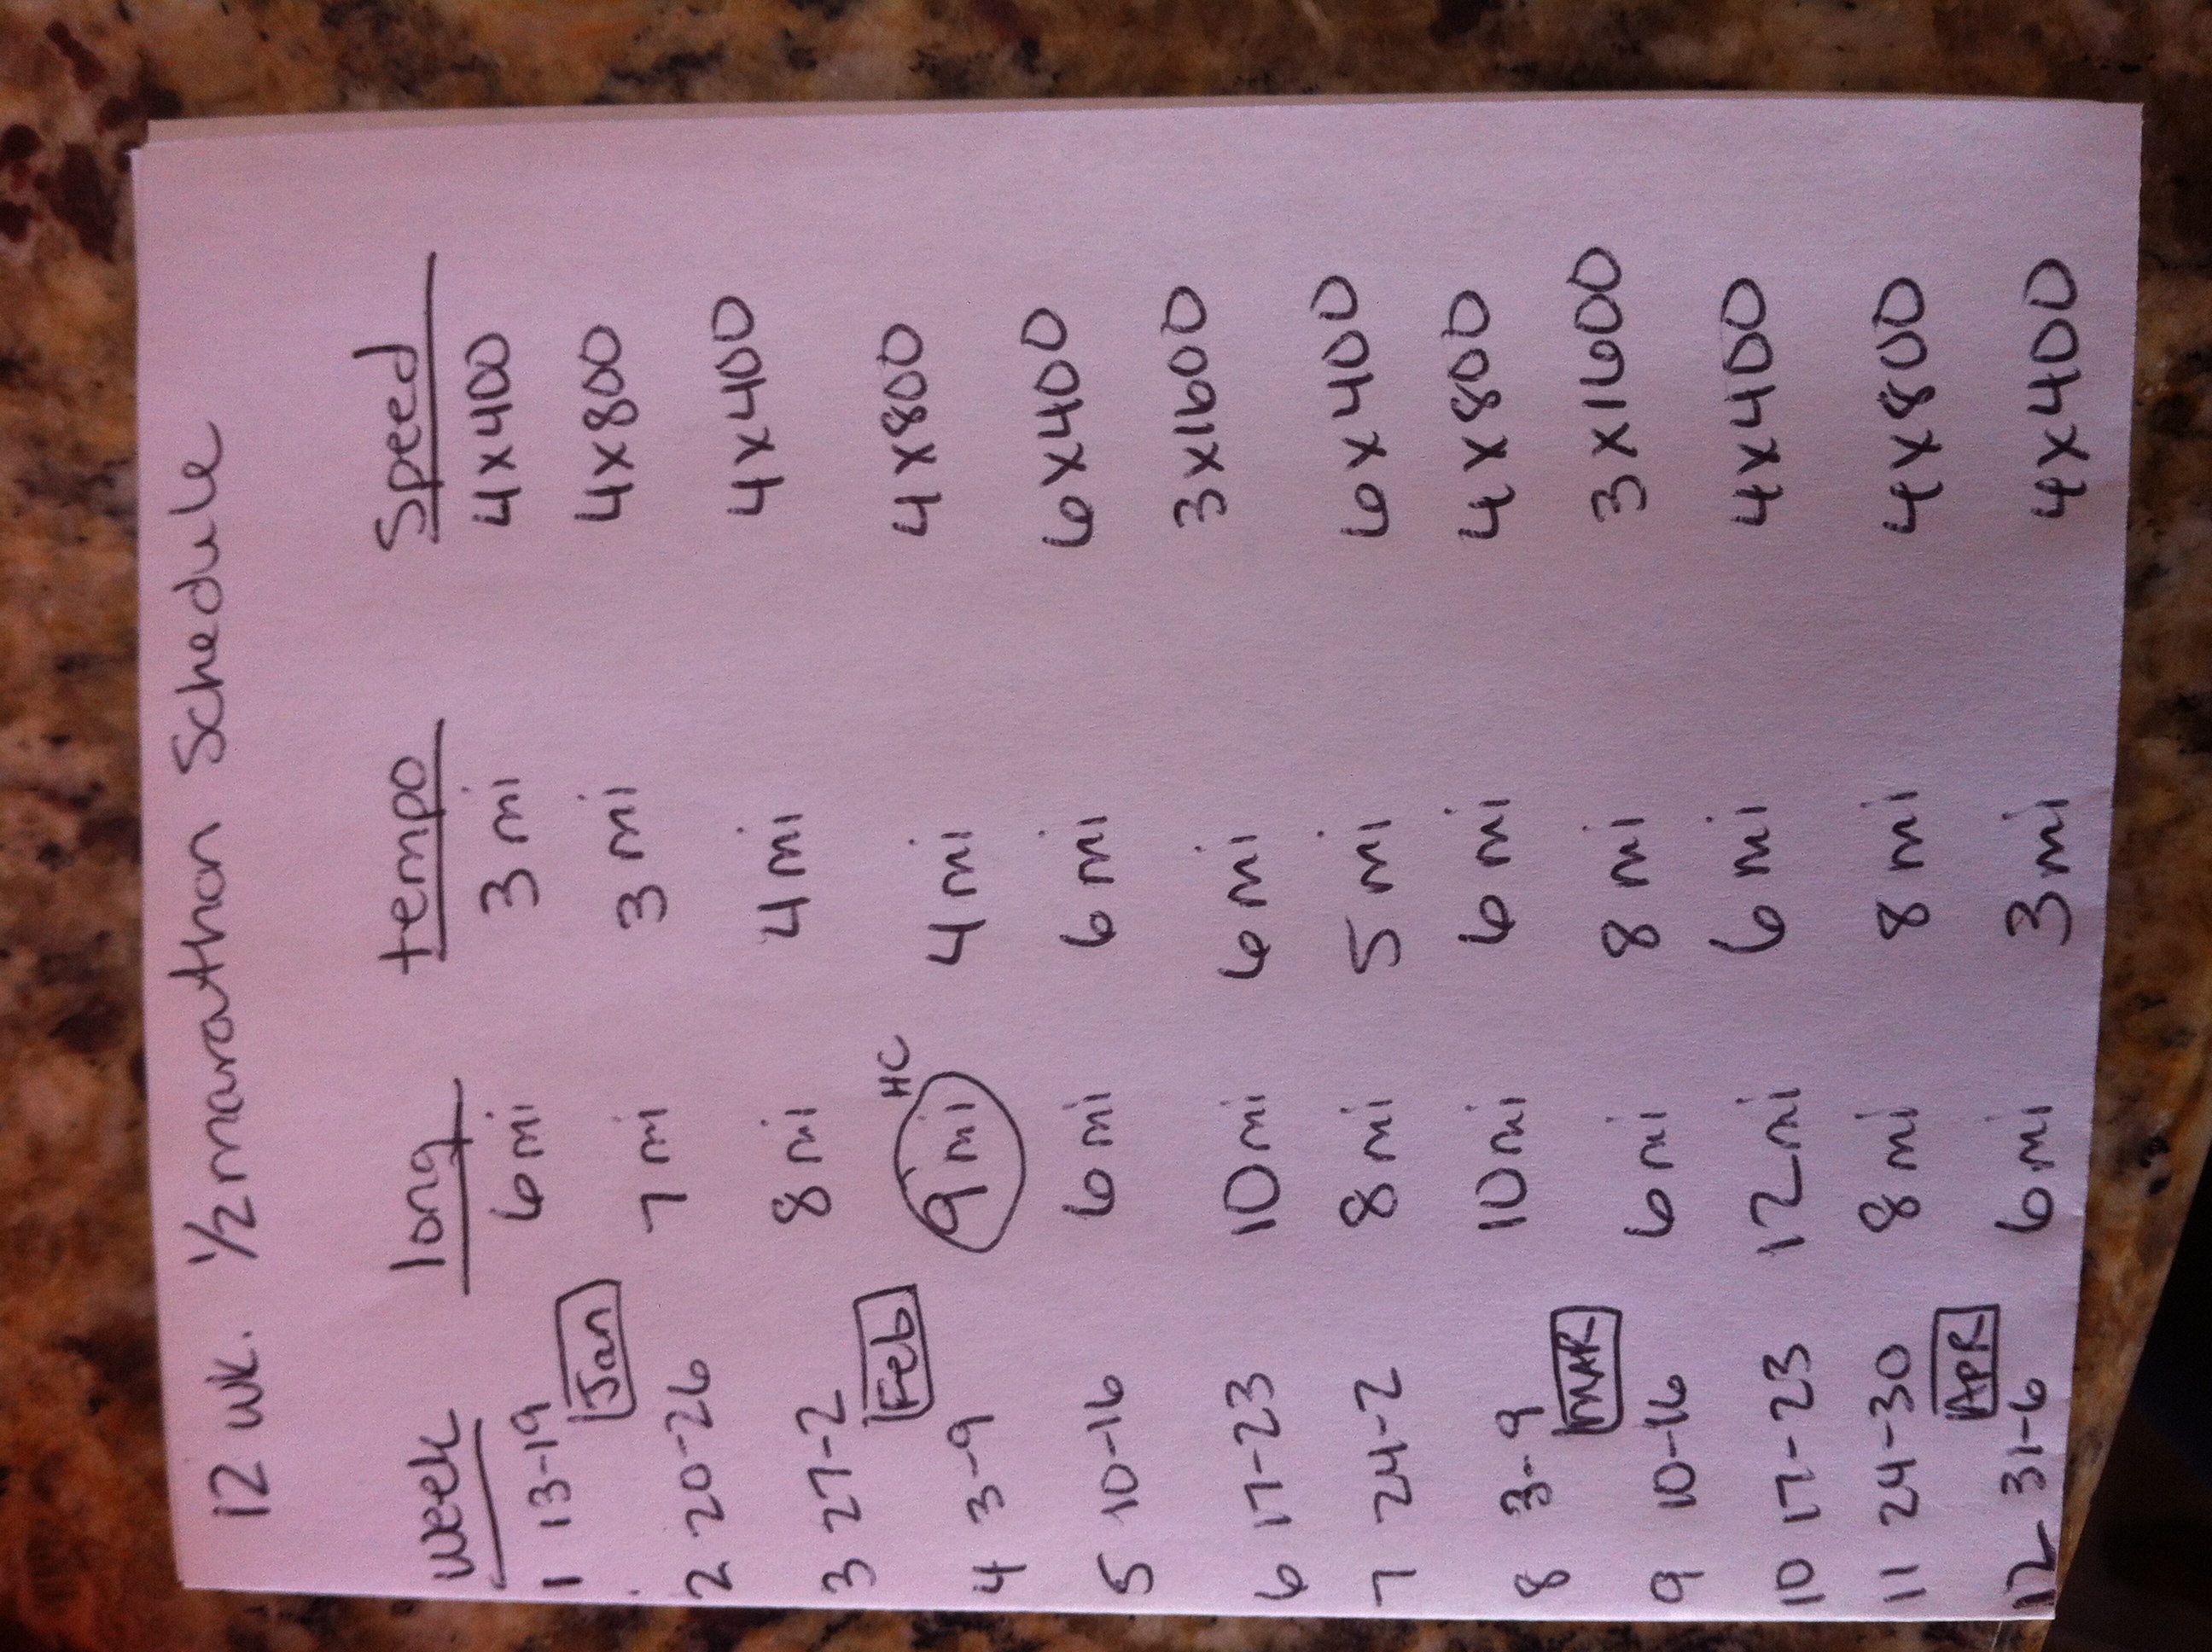 12 wk. 1/2 marathon Schedule
week long tempo Speed
1 13-19 6 mi 3 mi 4x400
Jan
2 20-26 7 mi 3 mi 4x800
3 27-2 8 mi 4 mi 4x400
Feb HC
4 3-9 9 mi 4 mi 4x800
5 10-16 6 mi 6 mi 6x400
6 17-23 10 mi 6 mi 3x1600
7 24-2 8 mi 5 mi 6x400
8 3-9 10 mi 6 mi 4x800
MAR
9 10-16 6 mi 8 mi 3x1600
10 17-23 12 mi 6 mi 4x400
11 24-30 8 mi 8 mi 4x800
APR
12 31-6 6 mi 3 mi 4x400